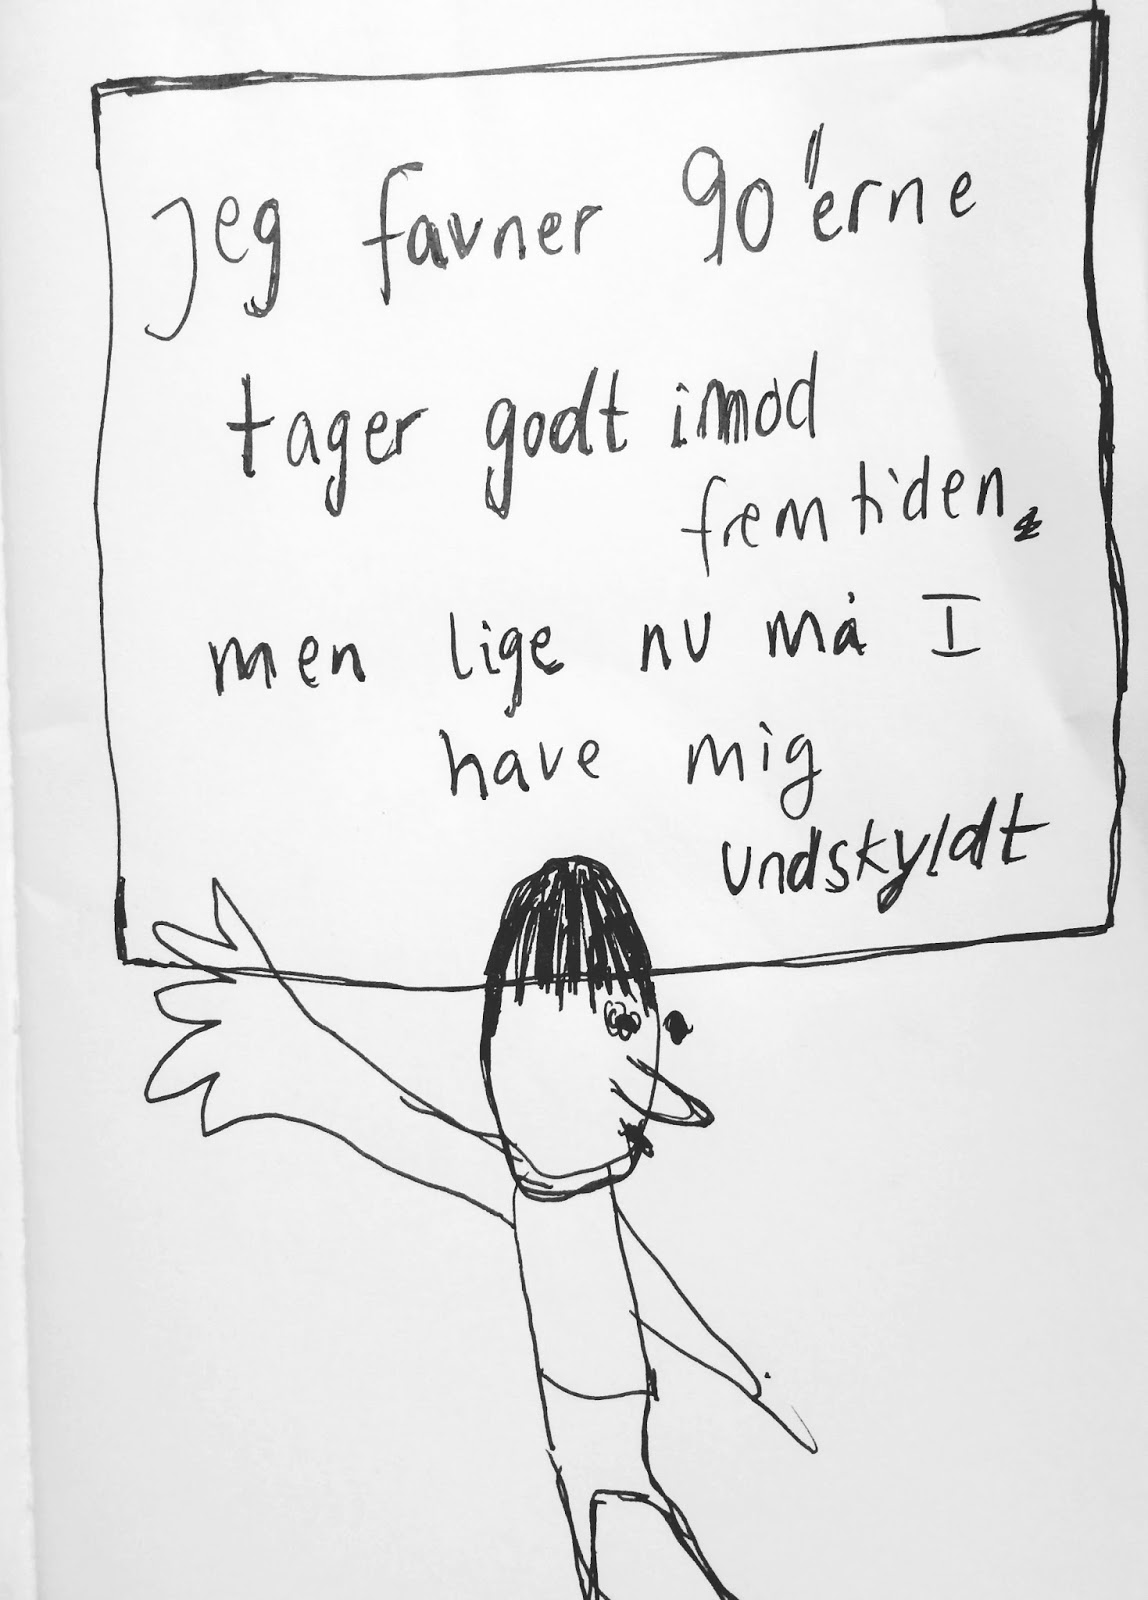 Jeg favner 90"erne
tager godt imod
fremtiden,
men lige nu må I
have mig
undskyldt